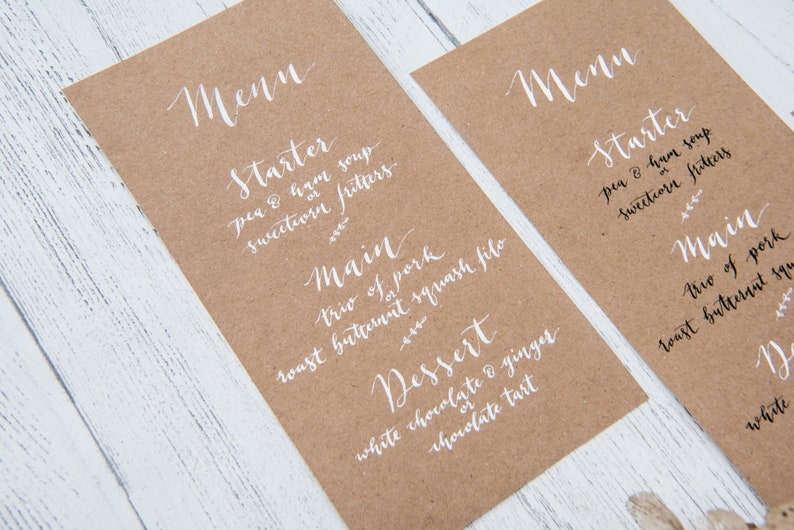 Menu
Starter
pea & ham soup
or
sweetcorn fritters
Main
trio of pork
or
roast butternut squash filo
Dessert
white chocolate & ginger
or
chocolate tart
Menu
Starter
pea & ham soup
or
sweetcorn fritters
Main
trio of pork
roast butternut squ
De
white